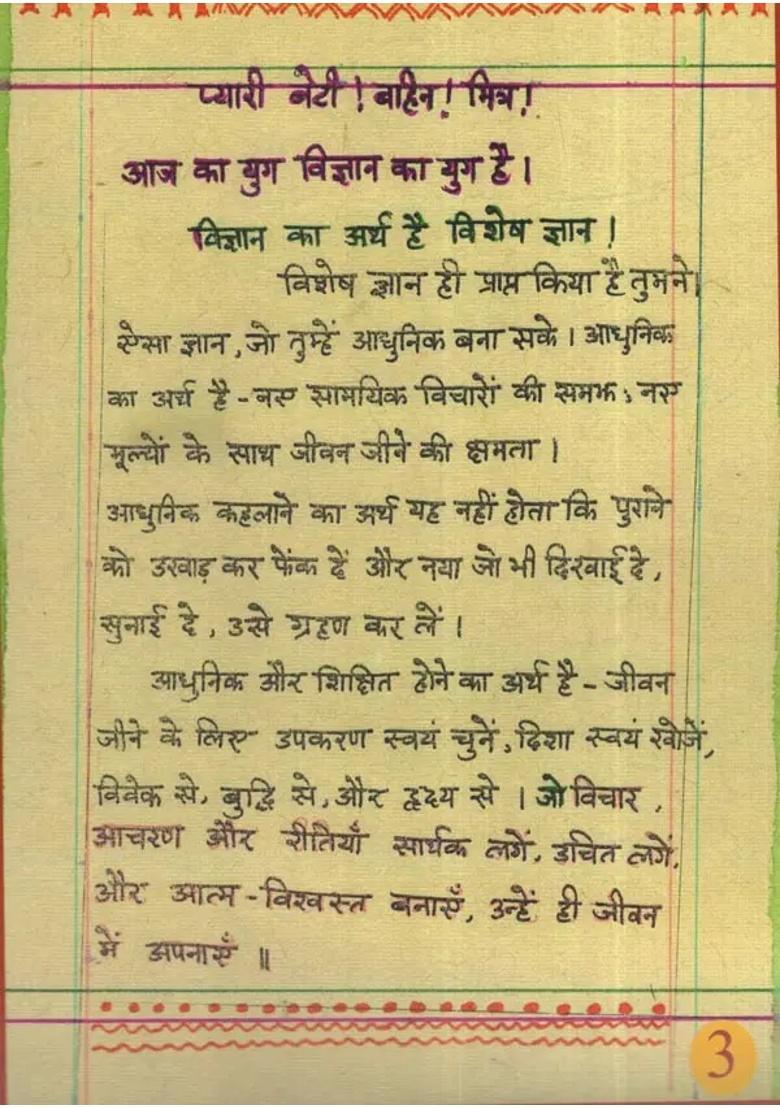 प्यारी बेटी ! बहिन ! मित्र !
आज का युग विज्ञान का युग है ।
विज्ञान का अर्थ है विशेष ज्ञान !
विशेष ज्ञान ही प्राप्त किया है तुमने।
ऐसा ज्ञान, जो तुम्हें आधुनिक बना सके । आधुनिक
का अर्थ है - नए सामयिक विचारों की समझ ; नए
मूल्यों के साथ जीवन जीने की क्षमता ।
आधुनिक कहलाने का अर्थ यह नहीं होता कि पुराने
को उखाड़ कर फेंक दें और नया जो भी दिखाई दे,
सुनाई दे, उसे ग्रहण कर लें ।
आधुनिक और शिक्षित होने का अर्थ है - जीवन
जीने के लिए उपकरण स्वयं चुनें, दिशा स्वयं खोजें,
विवेक से, बुद्धि से, और हृदय से । जो विचार,
आचरण और रीतियाँ सार्थक लगें, उचित लगें,
और आत्म - विश्वस्त बनाएँ, उन्हें ही जीवन
में अपनाएँ ॥
3